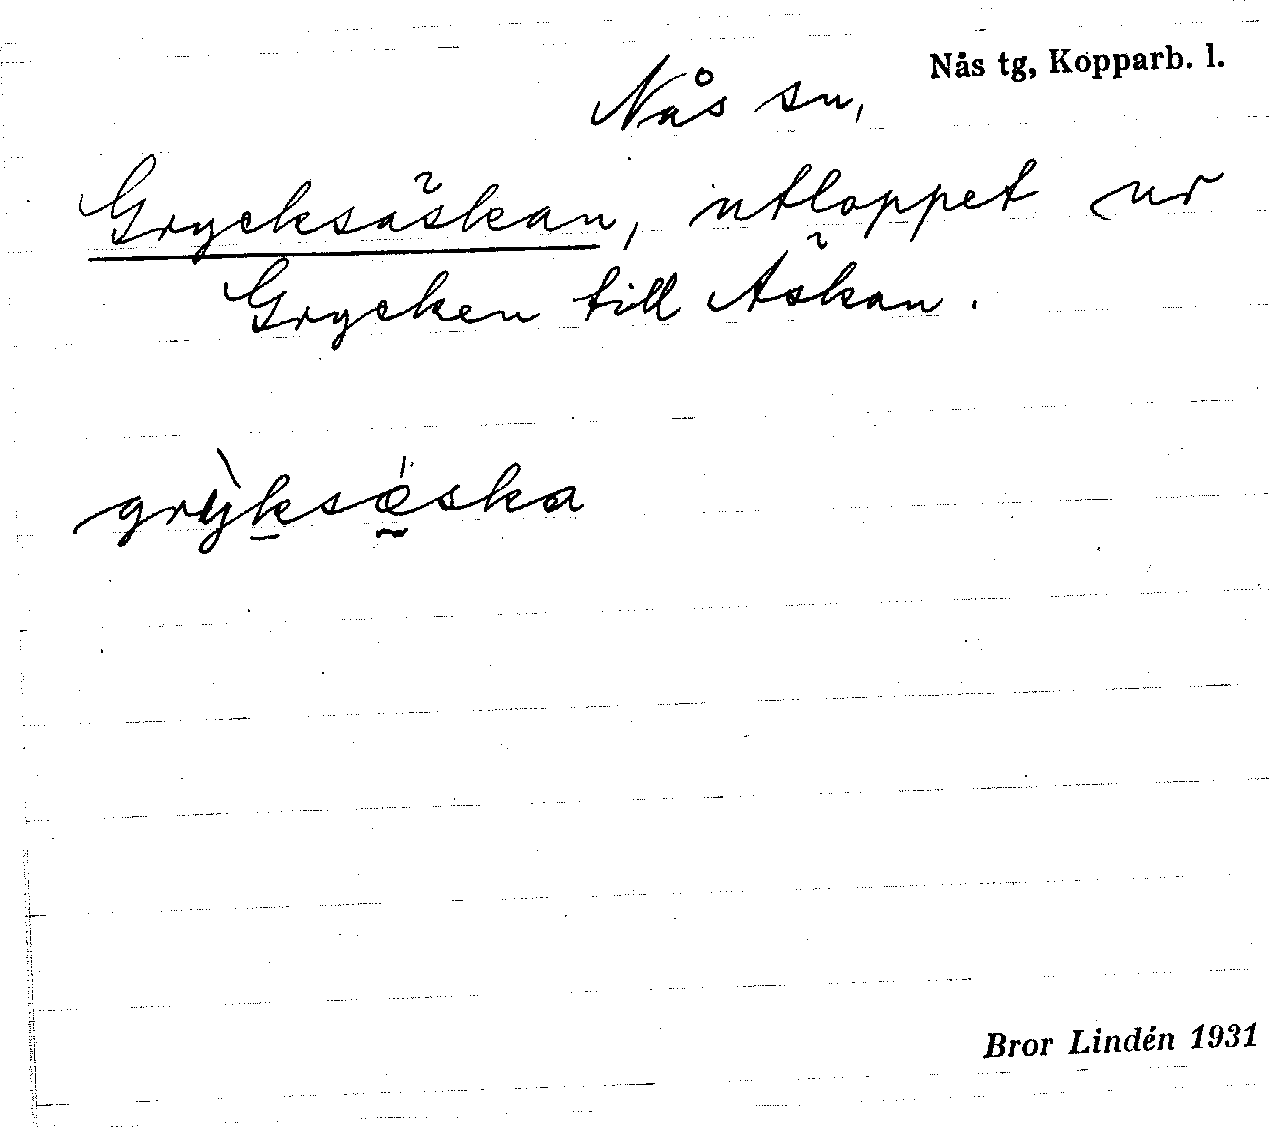 Nås tg, Kopparb. l.
Nås sn,
Grycksäskan, utloppet ur
Grycken till Äskan.
grỳksǽska
Bror Lindén 1931